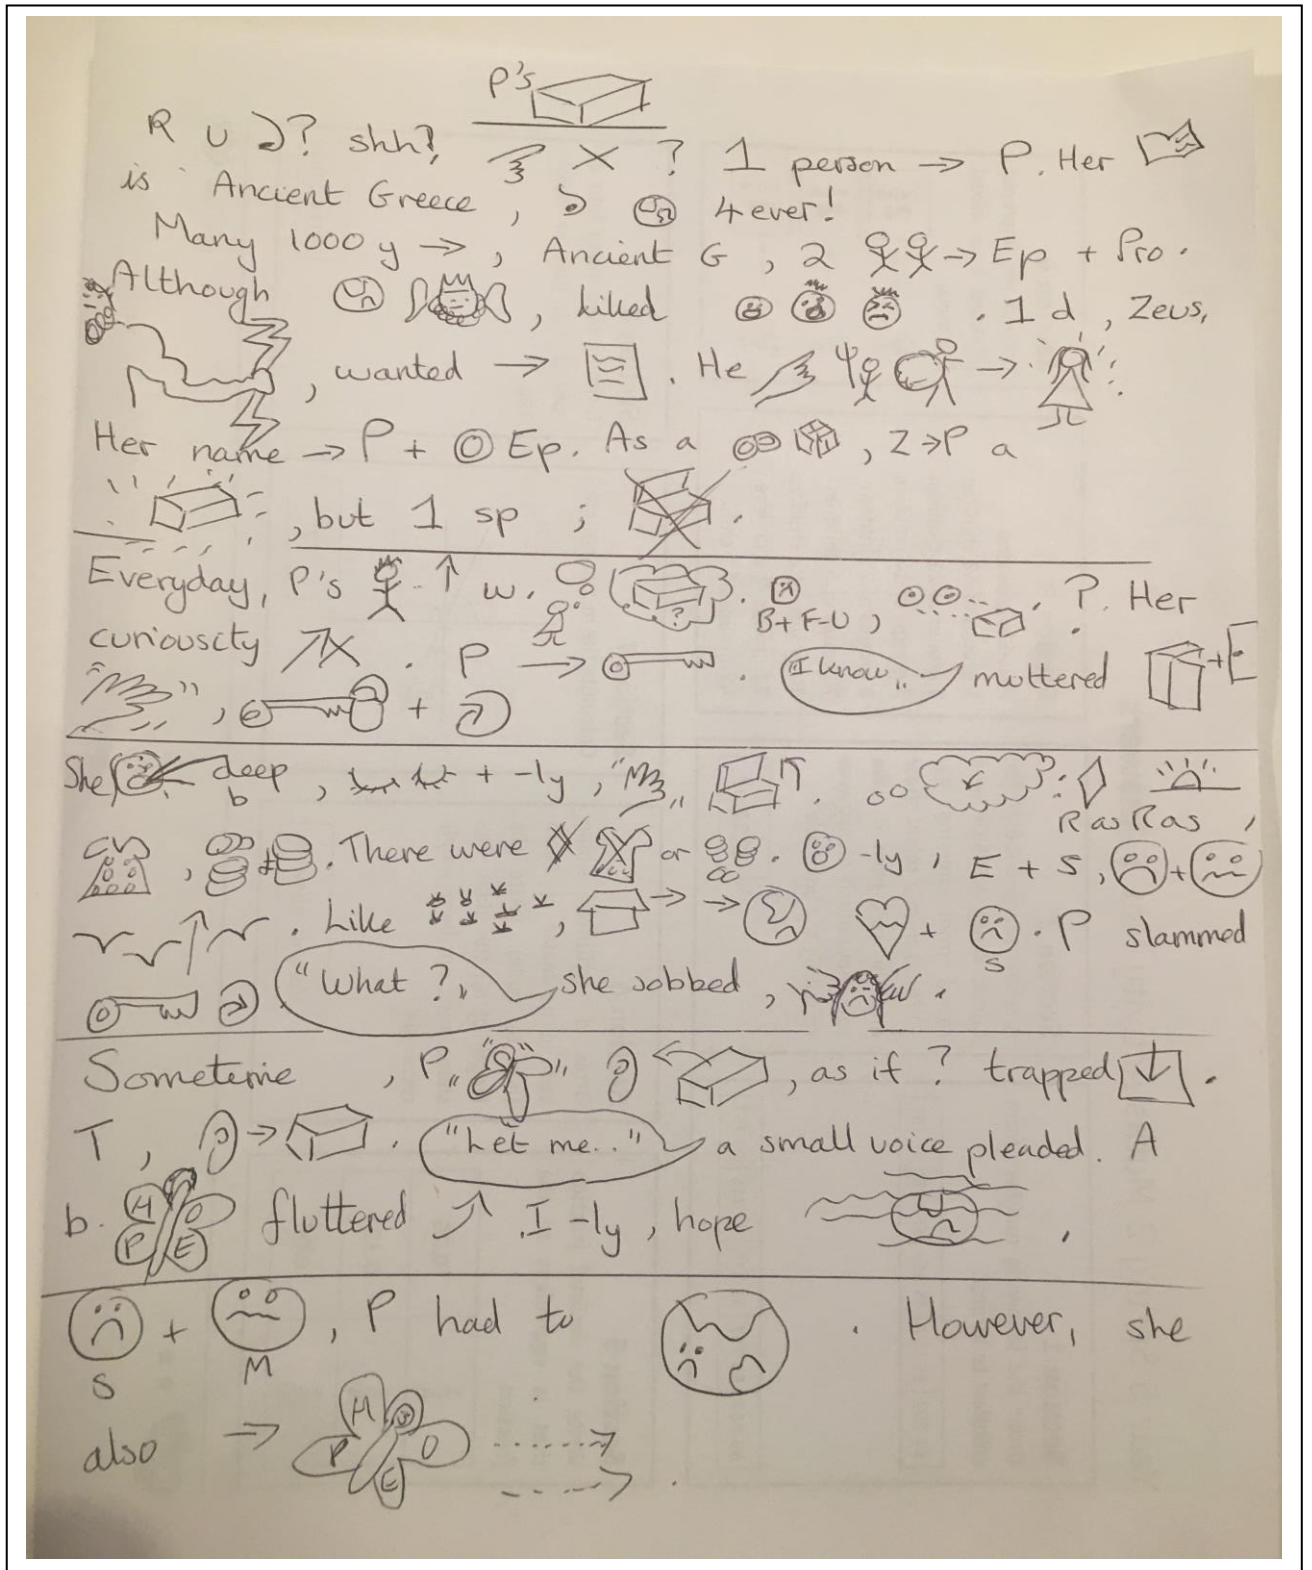 P's
R U ? shh? X ? 1 person → P. Her
is Ancient Greece, 4ever!
Many 1000 y →, Ancient G, 2 → Ep + Pro.
Although , killed . 1 d, Zeus,
, wanted → . He →
Her name → P + Ep. As a , Z→P a
, but 1 sp ; .
Everyday, P's ↑ w. ? . B+F-U, . ? . Her
curiouscity . P → . "I know,, muttered +
" ", +
She deep b, + -ly, " " . : R as R as ,
, + . There were or . -ly, E + S, +
. Like , → → + S . P slammed
"What ?,, she sobbed, .
Sometime , P " " , as if ? trapped ↓ .
T, → . "Let me.." a small voice pleaded. A
b. H O P E fluttered . I -ly, hope .
S + M, P had to . However, she
also → H O P E .